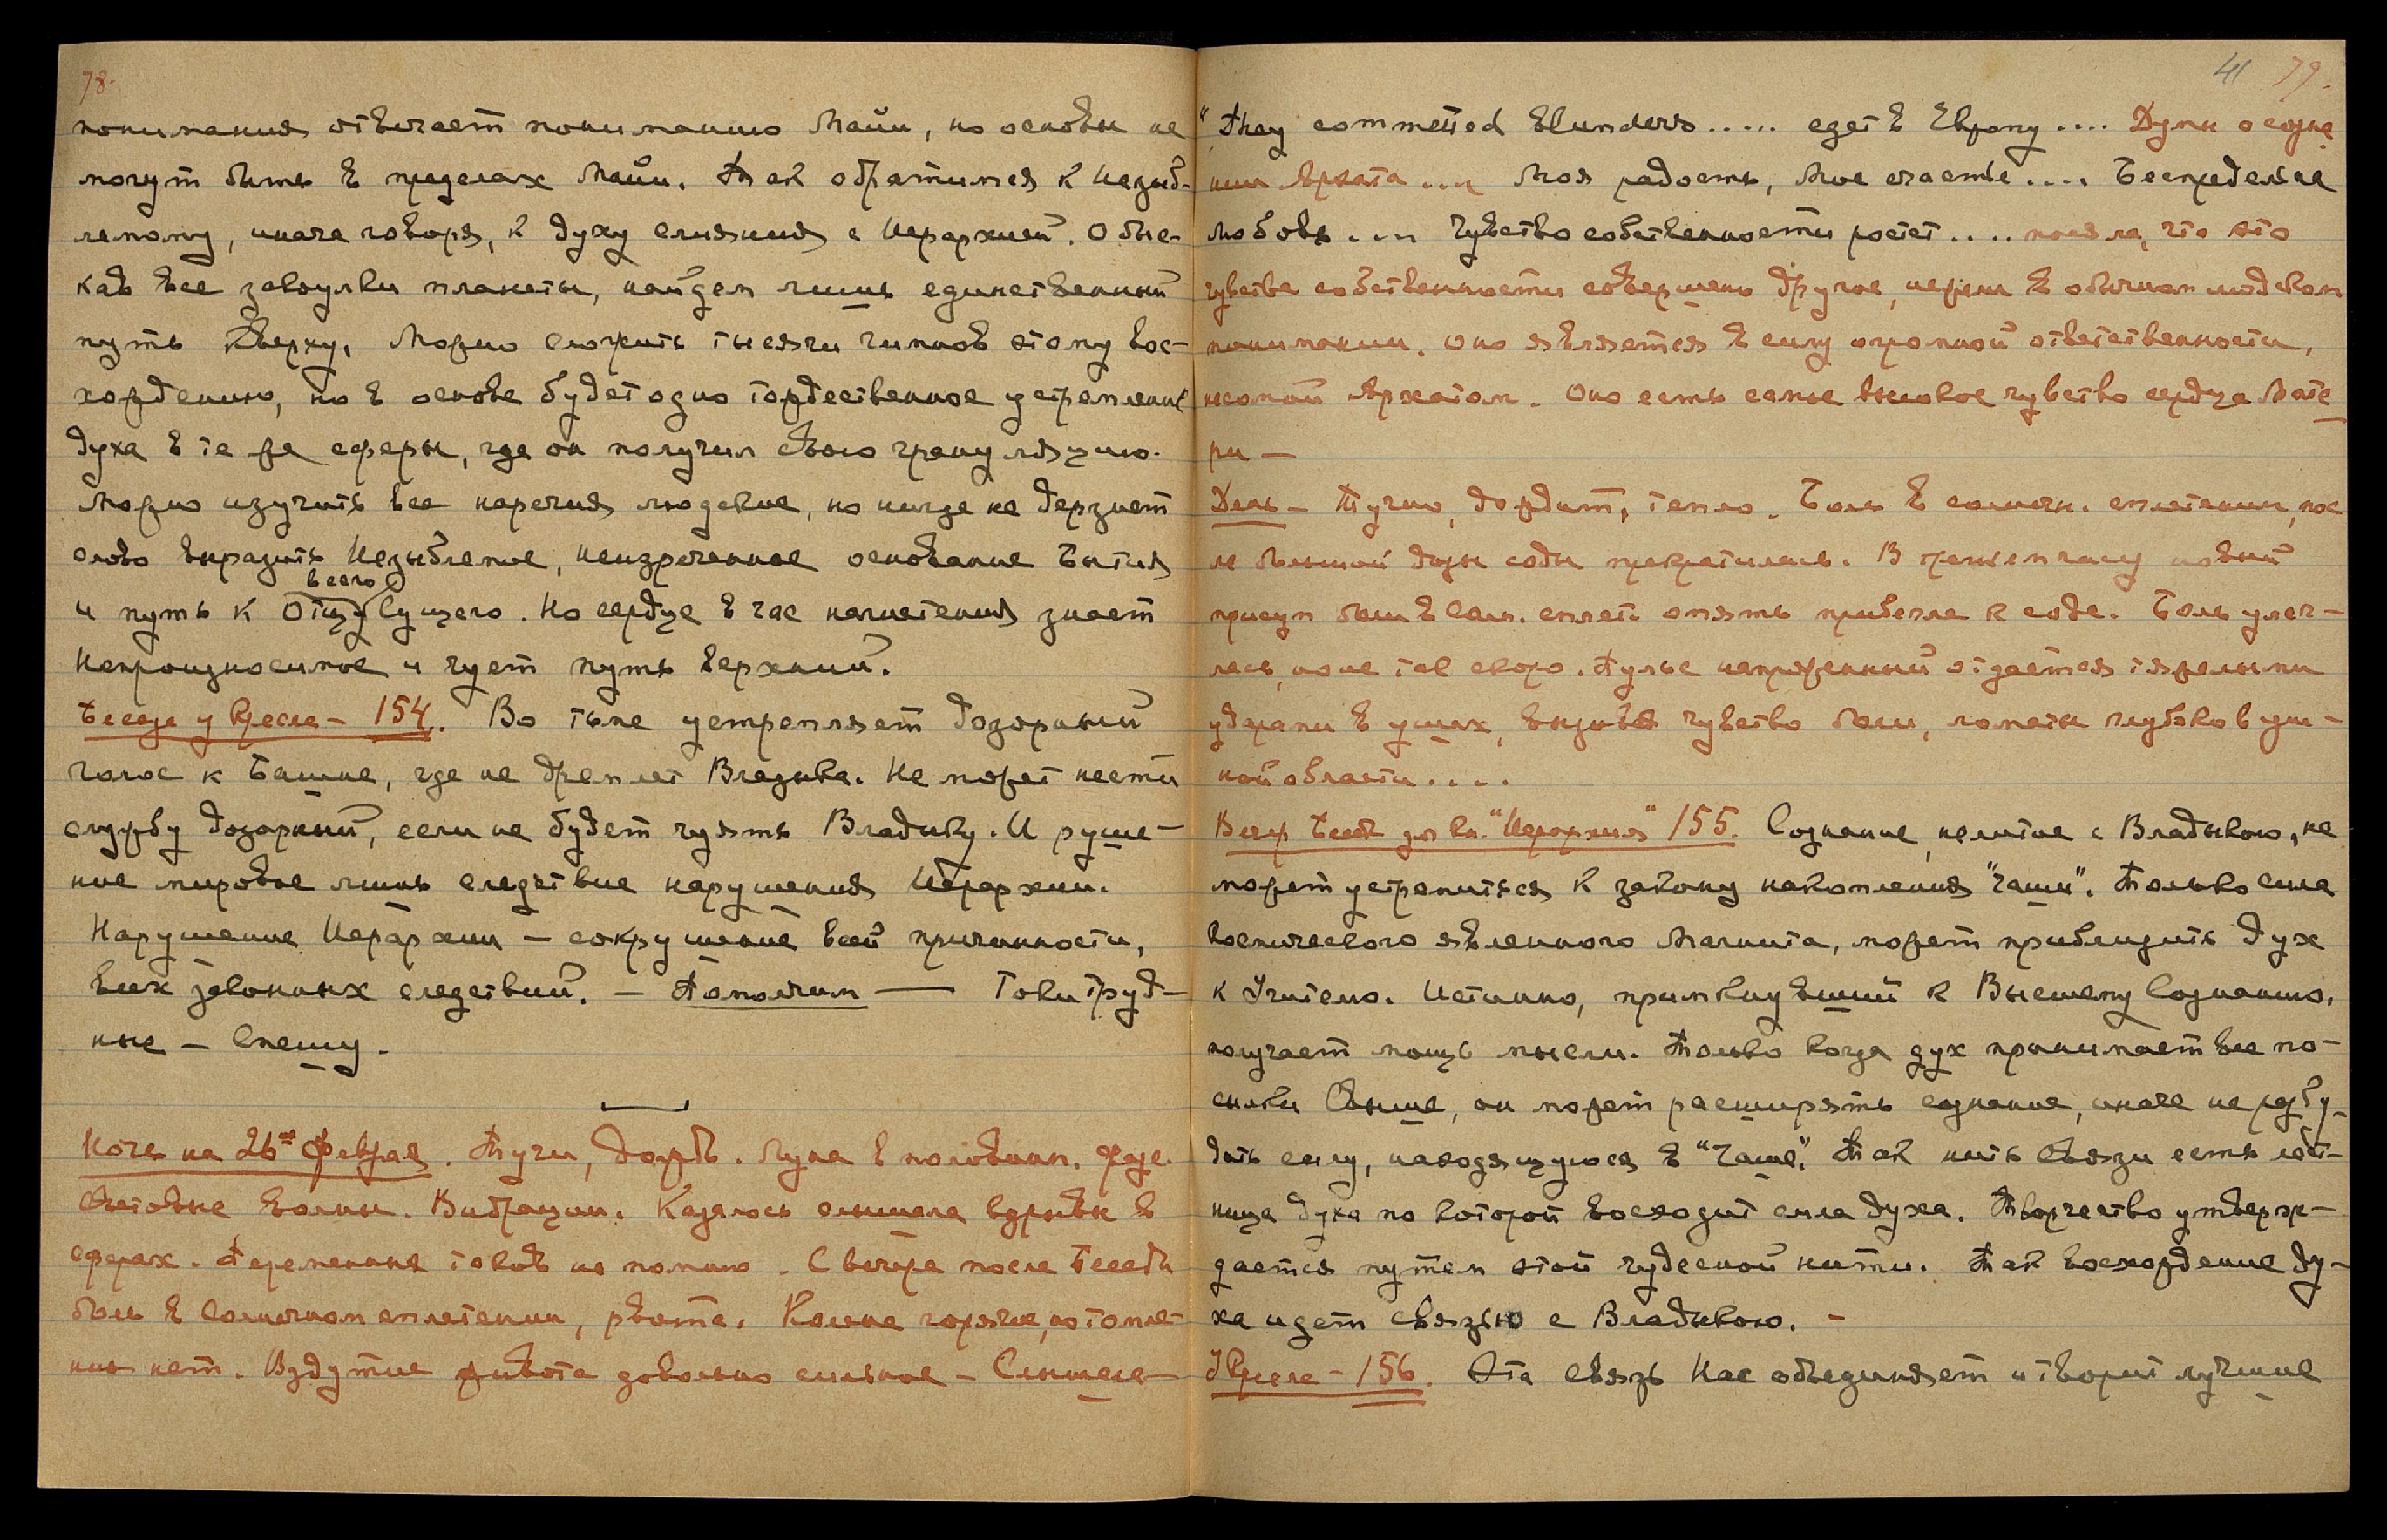 78.
понимания отвечает пониманию Майи, но основы не
могут быть в пределах Майи. Так обратимся к Незыб-
лемому, иначе говоря, к духу слияния с Иерархией. Обыс-
кав все закоулки планеты, найдем лишь единственный
путь кверху. Можно сложить тысячи гимнов этому вос-
хождению, но в основе будет одно торжественное устремление
духа в те же сферы, где он получил свою грануляцию.
Можно изучить все наречия людские, но нигде не дерзнет
слово выразить Незыблемое, неизреченное основание Бытия
всего
и путь к Отцу Сущего. Но сердце в час нагнетения знает
Непроизносимое и чует путь верхний.
Беседа у Кресла - 154. Во тьме устремляет дозорный
голос к Башне, где не дремлет Владыка. Не может нести
службу дозорный, если не будет чуять Владыку. И руше-
ние мировое лишь следствие нарушения Иерархии.
Нарушение Иерархии - сокрушение всей причинности,
всех законных следствий. - Помолчим — Токи труд-
ные - Спешу.
Ночь на 26ое Февраля. Тучи, дождь. Луна в половинн. фазе.
Световые волны. Вибрации. Казалось слышала взрывы в
сферах. Переменные токов не помню. С вечера после Беседы
боль в Солнечном сплетении, рвота. Колена горячие, но томле-
ния нет. Вздутие живота довольно сильное - Слышала -
41 79.
"They commetted blunders ..... едет в Европу .... Думы о созна
нии Архата .... Моя радость, Мое счастье .... Беспредельная
любовь .... Чувство собственности растет .... поняла, что это
чувство собственности совершенно другое, нежели в обычном людском
понимании. Оно является в силу огромной ответственности,
несомой Архатом. Оно есть самое высокое чувство сердца Мате
ри —
День - Тучно, дождит, тепло. Боль в солнечн. сплетении, пос
ле большой дозы соды прекратилась. В третьем часу новый
приступ боли в Солн. сплет. опять прибегла к соде. Боль улег-
лась, но не так скоро. Пульс напряженный отдается тяжелыми
ударами в ушах, вызывая чувство боли, ломоты глубоко в уш-
ной области ....
Вечер Бесед для кн. "Иерархия" 155. Сознание, не слитое с Владыкою, не
может устремиться к закону накопления "чаши". Только сила
космического явленного Магнита, может приблизить дух
к Учителю. Истинно, примкнувший к Высшему Сознанию,
получает мощь мысли. Только когда дух принимает все по-
сылки Свыше, он может расширять сознание, иначе не разбу-
дить силу, находящуюся в "Чаше". Так нить Связи есть лест-
ница духа по которой восходит сила духа. Творчество утверж-
дается путем этой чудесной нити. Так восхождение ду-
ха идет связью с Владыкою. -
У Кресла - 156. Эта связь Нас объединяет и творит лучшие